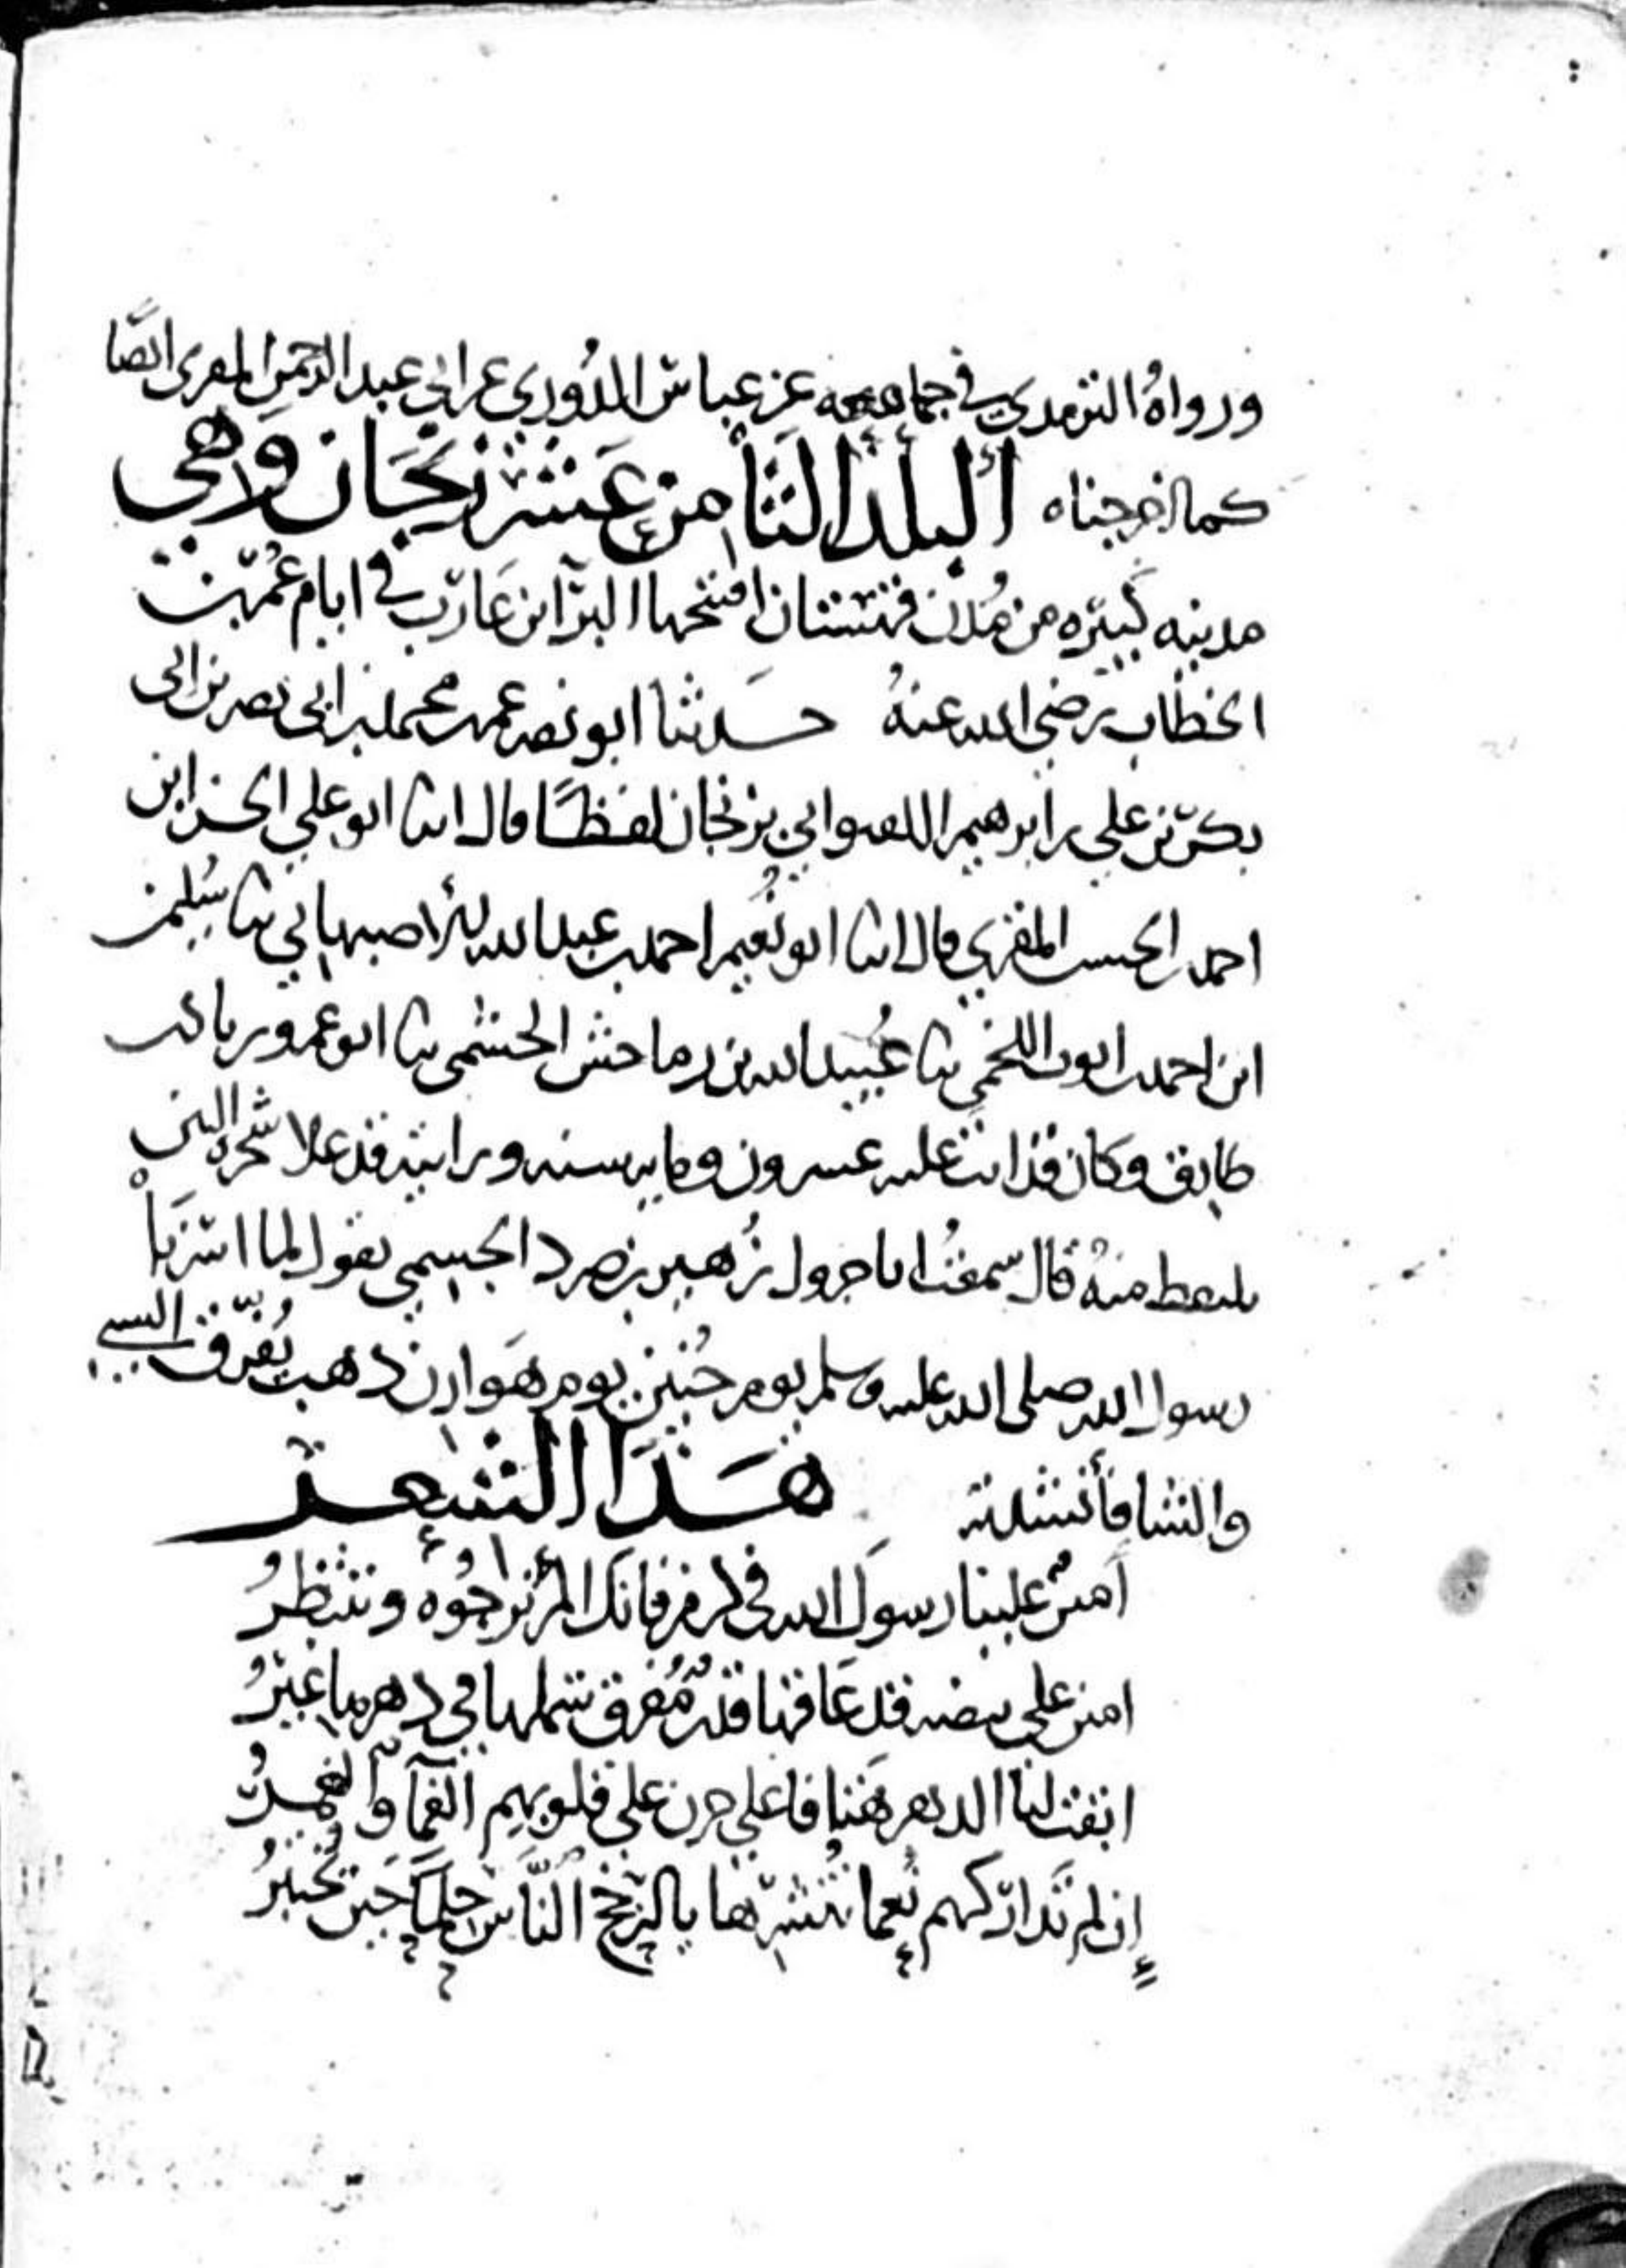 ورواه الترمدي في جامعه عن عباس الدوري عن ابي عبد الرحمن المقرى ايضًا
كما اخرجناه البلد الثامن عشر زنجان وهي
مدينه كبيره من مدن قهستان افتتحها البرآ ابن عازب في ايام عمر بن
الخطاب رضي الله عنهُ حدثنا ابو نصر عمر بن محمد بن ابي نصر بن ابي
بكر بن علي بن ابرهيم بزنجان لفظًا قال انبا ابو علي الحسن ابن
احمد بن الحسن المقري قال انبا ابو نُعيم احمد بن عبد الله الاصبهاني ثنا سُليمن
ابن احمد بن ايوب اللخمي ثنا عُبيد الله بن رماحس الجشمي ثنا ابو عمرو زياد بن
طارق وكان قد اتت عليه عشرون ومايه سنه ورايته قد علا شجره التين
يلتقط منهُ قال سمعتُ ابا جرول زُهير بن صرد الجشمي يقول لما اسرنا
رسول الله صلى الله عليه وسلم يوم حُنين يوم هوازن ذهب يُفرق السبي
والشا فأنشدته هذا الشعر
امنن علينا رسول الله في كرم فانك المرء نرجوه وننتظرُ
امنن على بيضه قد عاقها قدرٌ مُفرق شملها في دهرها غيرُ
ابقت لنا الدهر هتافا على حزن على قلوبهم الغمآ والغمرُ
إن لم تداركهم نُعما تنشرها يا ارجح الناس حلمًا حين تختبرُ